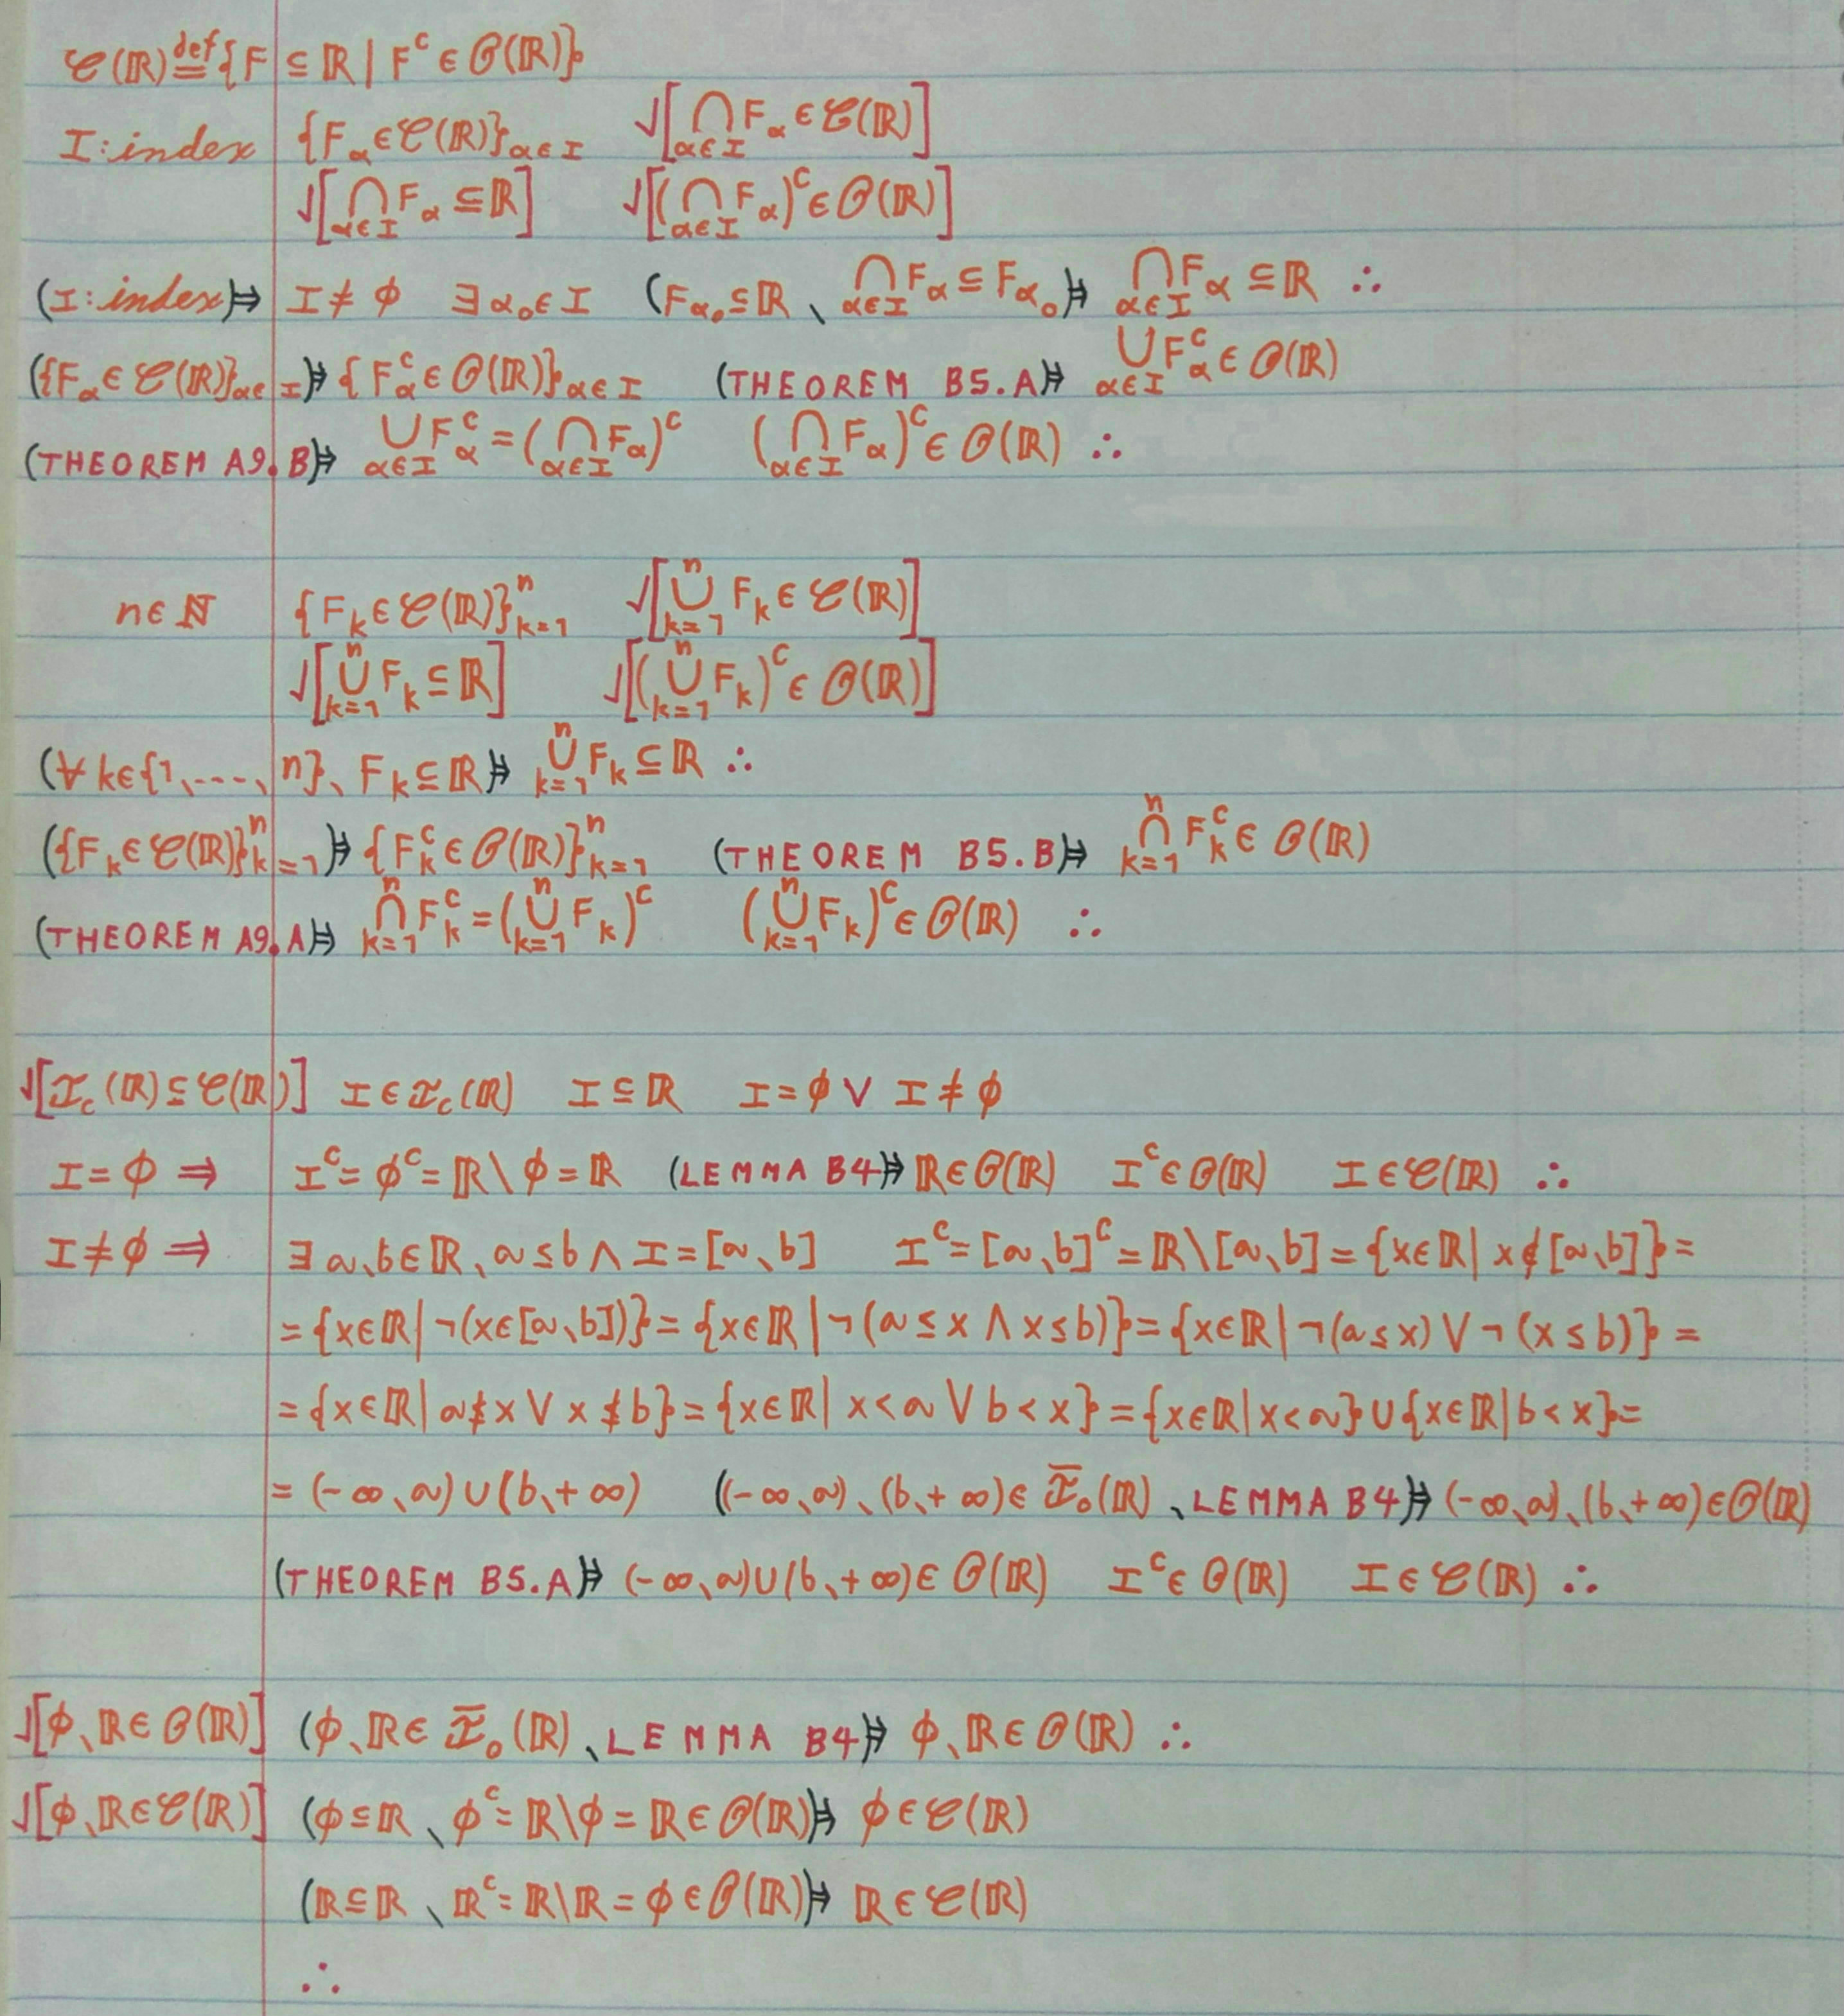 𝒞(ℝ) ≝ {F ⊆ ℝ | Fᶜ ∈ 𝒪(ℝ)}
I: index {F_α ∈ 𝒞(ℝ)}_{α∈I} √[⋂_{α∈I} F_α ∈ 𝒞(ℝ)]
√[⋂_{α∈I} F_α ⊆ ℝ] √[(⋂_{α∈I} F_α)ᶜ ∈ 𝒪(ℝ)]
(I: index)⇒ I ≠ ϕ ∃ α₀ ∈ I (F_{α₀} ⊆ ℝ、⋂_{α∈I} F_α ⊆ F_{α₀})⇒ ⋂_{α∈I} F_α ⊆ ℝ ∴
({F_α ∈ 𝒞(ℝ)}_{α∈I})⇒ {F_αᶜ ∈ 𝒪(ℝ)}_{α∈I} (THEOREM B5.A)⇒ ⋃_{α∈I} F_αᶜ ∈ 𝒪(ℝ)
(THEOREM A9.B)⇒ ⋃_{α∈I} F_αᶜ = (⋂_{α∈I} F_α)ᶜ (⋂_{α∈I} F_α)ᶜ ∈ 𝒪(ℝ) ∴
n ∈ ℕ {F_k ∈ 𝒞(ℝ)}_{k=1}^n √[⋃_{k=1}^n F_k ∈ 𝒞(ℝ)]
√[⋃_{k=1}^n F_k ⊆ ℝ] √[(⋃_{k=1}^n F_k)ᶜ ∈ 𝒪(ℝ)]
(∀ k∈{1、....、n}、F_k ⊆ ℝ)⇒ ⋃_{k=1}^n F_k ⊆ ℝ ∴
({F_k ∈ 𝒞(ℝ)}_{k=1}^n)⇒ {F_kᶜ ∈ 𝒪(ℝ)}_{k=1}^n (THEOREM B5.B)⇒ ⋂_{k=1}^n F_kᶜ ∈ 𝒪(ℝ)
(THEOREM A9.A)⇒ ⋂_{k=1}^n F_kᶜ = (⋃_{k=1}^n F_k)ᶜ (⋃_{k=1}^n F_k)ᶜ ∈ 𝒪(ℝ) ∴
√[ℐ_c(ℝ) ⊆ 𝒞(ℝ)] I ∈ ℐ_c(ℝ) I ⊆ ℝ I = ϕ ∨ I ≠ ϕ
I = ϕ ⇒ Iᶜ = ϕᶜ = ℝ∖ϕ = ℝ (LEMMA B4)⇒ ℝ ∈ 𝒪(ℝ) Iᶜ ∈ 𝒪(ℝ) I ∈ 𝒞(ℝ) ∴
I ≠ ϕ ⇒ ∃ a、b ∈ ℝ、a ≤ b ∧ I = [a、b] Iᶜ = [a、b]ᶜ = ℝ∖[a、b] = {x∈ℝ | x ∉ [a、b]} =
= {x∈ℝ | ¬(x∈[a、b])} = {x∈ℝ | ¬(a ≤ x ∧ x ≤ b)} = {x∈ℝ | ¬(a ≤ x) ∨ ¬(x ≤ b)} =
= {x∈ℝ | a ≰ x ∨ x ≰ b} = {x∈ℝ | x < a ∨ b < x} = {x∈ℝ | x < a} ∪ {x∈ℝ | b < x} =
= (-∞、a) ∪ (b、+∞) ((-∞、a)、(b、+∞) ∈ ℐ̅₀(ℝ)、LEMMA B4)⇒ (-∞、a)、(b、+∞) ∈ 𝒪(ℝ)
(THEOREM B5.A)⇒ (-∞、a) ∪ (b、+∞) ∈ 𝒪(ℝ) Iᶜ ∈ 𝒪(ℝ) I ∈ 𝒞(ℝ) ∴
√[ϕ、ℝ ∈ 𝒪(ℝ)] (ϕ、ℝ ∈ ℐ̅₀(ℝ)、LEMMA B4)⇒ ϕ、ℝ ∈ 𝒪(ℝ) ∴
√[ϕ、ℝ ∈ 𝒞(ℝ)] (ϕ ⊆ ℝ、ϕᶜ = ℝ∖ϕ = ℝ ∈ 𝒪(ℝ))⇒ ϕ ∈ 𝒞(ℝ)
(ℝ ⊆ ℝ、ℝᶜ = ℝ∖ℝ = ϕ ∈ 𝒪(ℝ))⇒ ℝ ∈ 𝒞(ℝ)
∴